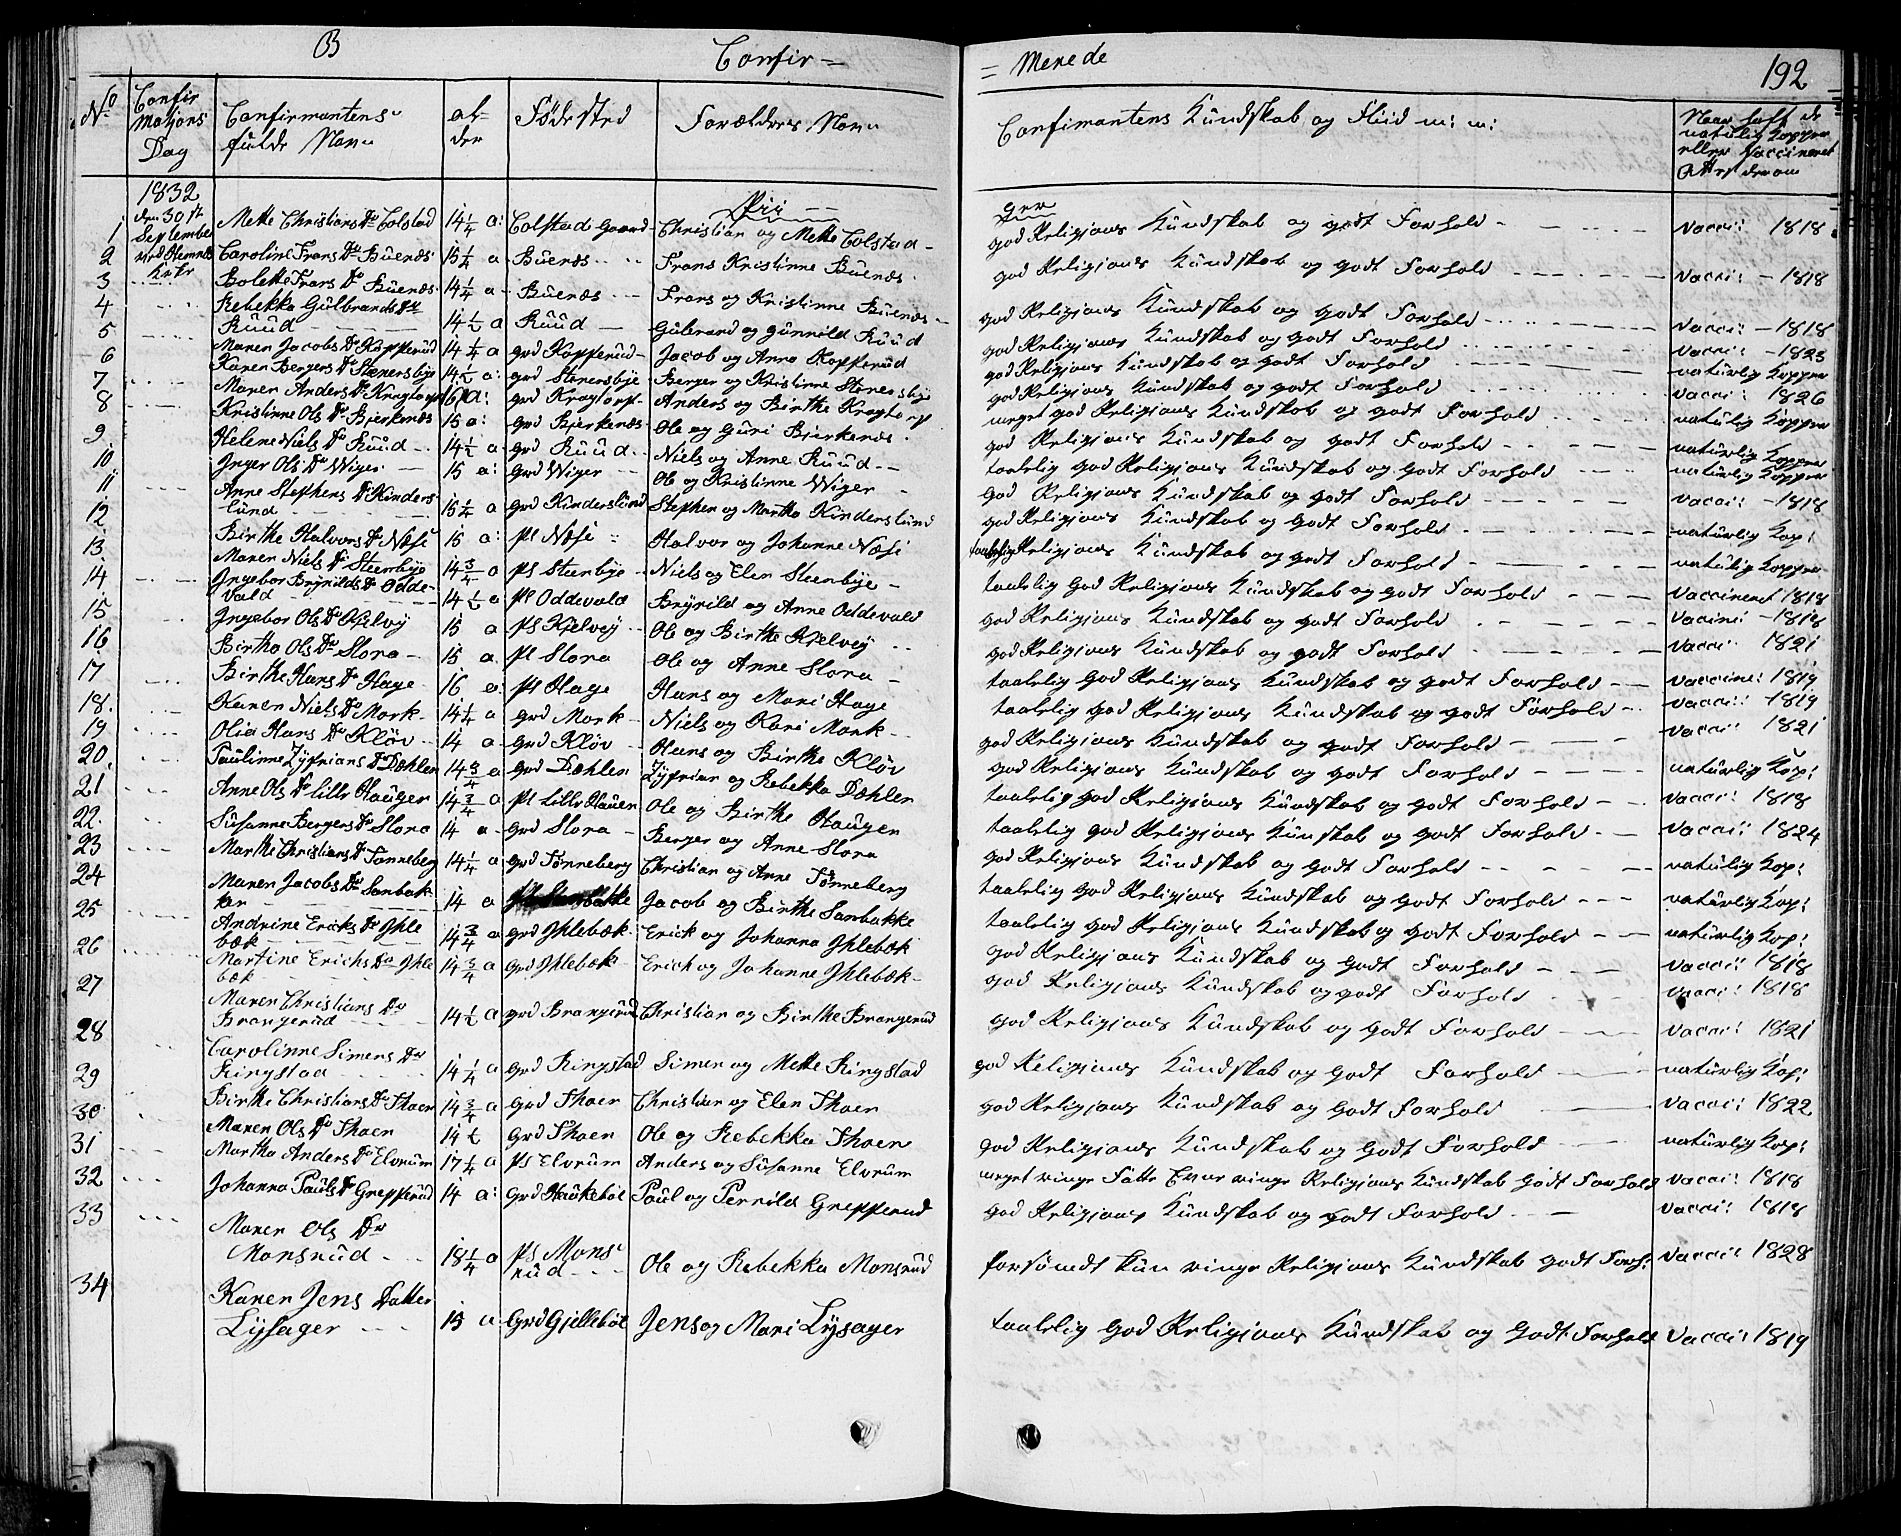 B Confir = = Merede 192
No Confirmasjons Dag Confirmantens fulde Navn alder Fødested Forældres Navn Confimantens Kundskab og Fliid m: m: Naar haft de natulig Kopper eller Vaccineret Attest derom
1832 den 30te September ved Hemnes Kirke
Piiger
1 Mette Christians Dr Colstad 14 1/4 a: Colstad Gaard Christian og Mette Colstad god Religions Kundskab og godt Forhold vacci: 1818
2 Caroline Frans Dr Buenæs 15 1/4 a Buenæs Frans Kristinne Buenæs god Religions Kundskab og godt Forhold vacci: 1818
3 Bolette Frans Dr Buenæs 14 1/4 a Buenæs Frans og Kristinne Buenæs god Religions Kundskab og godt Forhold vacci: 1818
4 Rebekka Gulbrands Dr Ruud 14 1/2 a Ruud Gulbrand og Gunnild Ruud god Religions Kundskab og godt Forhold vacci: 1823
5 Maren Jacobs Dr Kopperud 14 1/4 a grd Kopperud Jacob og Anna Kopperud god Religions Kundskab og godt Forhold naturlig Kopper
6 Karen Bergers Dr Stenersbye 14 1/2 a: grd Stenersbye Berger og Kristinne Stenersbye god Religions Kundskab og godt Forhold vacci: 1826
7 Maren Anders Dr Kragtorp 16 a: grd Kragtorp Anders og Birthe Kragtorp meget god Religions Kundskab og godt Forhold naturlig Kopper
8 Kristinne Ols Dr Bjerkenæs 15 a: grd Bjerkenæs Ole og Guri Bjerkenæs god Religions Kundskab og godt Forhold naturlig Kopper
9 Helene Niels Dr Ruud 14 1/2 a grd Ruud Niels og Anne Ruud taalelig god Religions Kundskab og godt Forhold naturlig Kopper
10 Inger Ols Dr Wiger 15 a: grd Wiger Ole og Kristinne Wiger god Religions Kundskab og godt Forhold vacci: 1818
11 Anne Stephens Dr Kinderslund 15 1/4 a grd Kinderslund Stephen og Martha Kinderslund god Religions Kundskab og godt Forhold naturlig Kop:
12 Birthe Halvors Dr Næse 15 a: Pl Næse Halvor og Johanne Næse taalelig Religions Kundskab og godt Forhold natulig Kopper
13 Maren Niels Dr Steenbye 14 3/4 a Pl Steenbye Niels og Elen Steenbye taalelig god Religions Kundskab og godt Forhold Vaccineret 1818
14 Ingebor Brynilds Dr Oddevald 14 1/2 a Pl Oddevald Brynild og Anne Oddevald god Religions Kundskab og godt Forhold Vacine: 1818
15 Ingebor Ols Dr Kjelvey 15 a Pl Kjelvey Ole og Birthe Kjelvey god Religions Kundskab og godt Forhold vacci: 1821
16 Birtha Ols Dr Slora 15 a. Pl Slora Ole og Anne Slora taalelig god Religions Kundskab og godt Forhold vaccine: 1819
17 Birthe Hans Dr Hage 16 a: Pl Hage Hans og Mari Hage taalelig god Religions Kundskab og godt Forhold vacci: 1819
18. Karen Niels Dr Mork 14 1/4 a grd Mork Niels og Kari Mork god Religions Kundskab og godt Forhold vacci: 1821
19 Olia Hans Dr Kløv 14 a grd Kløv Hans og Birthe Kløv god Religions Kundskab og godt Forhold naturlig Kop:
20. Paulinne Zyprians Dr Dæhlen 14 3/4 a grd Dæhlen Zyprian og Rebekka Dæhlen taalelig god Religions Kundskab og godt Forhold vacci: 1818
21 Anne Ols Dr Lille Haugen 14 3/4 a Pl Lille Hauen Ole og Birthe Haugen taalelig god Religions Kundskab og godt Forhold vacci: 1824
22. Susanne Bergers Dr Slora 14 a grd Slora Berger og Anne Slora god Religions Kundskab og godt Forhold naturlig Kop:
23 Marthe Christians Dr Tønneberg 14 1/4 a grd Tønneberg Christian og Anne Tønneberg taalelig god Religions Kundskab og godt Forhold naturlig Kop:
24 Maren Jacobs Dr Sanbakken 14 a Jacob og Birthe Sanbakke taalelig god Religions Kundskab og godt Forhold naturlig Kop:
25 Andrine Ericks Dr Ihlebæk 14 3/4 a grd Ihlebæk Erick og Johanna Ihlebæk god Religions Kundskab og godt Forhold vacci: 1818
26 Martine Erichs Dr Ihlebæk 14 3/4 a grd Ihlebæk Erick og Johanne Ihlebæk god Religions Kundskab og godt Forhold vacci: 1818
27 Maren Christians Dr Brangerud 14 1/2 a grd Brangerud Christian og Birthe Brangerud god Religions Kundskab og godt Forhold vacci: 1821
28 Carolinne Simens Dr Ringstad 14 1/4 a grd Ringstad Simen og Mette Ringstad god Religions Kundskab og godt Forhold naturlig Kop:
29 Birthe Christians Dr Thoen 14 3/4 a grd Thoen Christian og Elen Thoen god Religions Kundskab og godt Forhold vacci: 1822
30 Maren Ols Dr Thoen 14 1/2 grd Thoen Ole og Rebekka Thoen god Religions Kundskab og godt Forhold naturlig Kop:
31 Martha Anders Dr Elvrum 17 1/4 a Ps Elvrum Anders og Susanne Elvrum meget ringe Fatte Evne ringe Religions Kundskab godt Forhold vacci: 1818
32 Johanna Pauls Dr Grepperud 14 a: grd Haukebøl Paul og Pernild Grepperud god Religions Kundskab og godt Forhold vacci: 1818
33 Maren Ols Dr Monsrud 18 1/4 a Ps Monsrud Ole og Rebekka Monsrud forsømdt kun ringe Religions Kundskab godt Forh: vacci: 1828
34 Karen Jens Datter Lysager 15 a Grd Gjellebøl Jens og Mari Lysager taalelig god Religions Kundskab og Godt Forhold Vacci: 1819